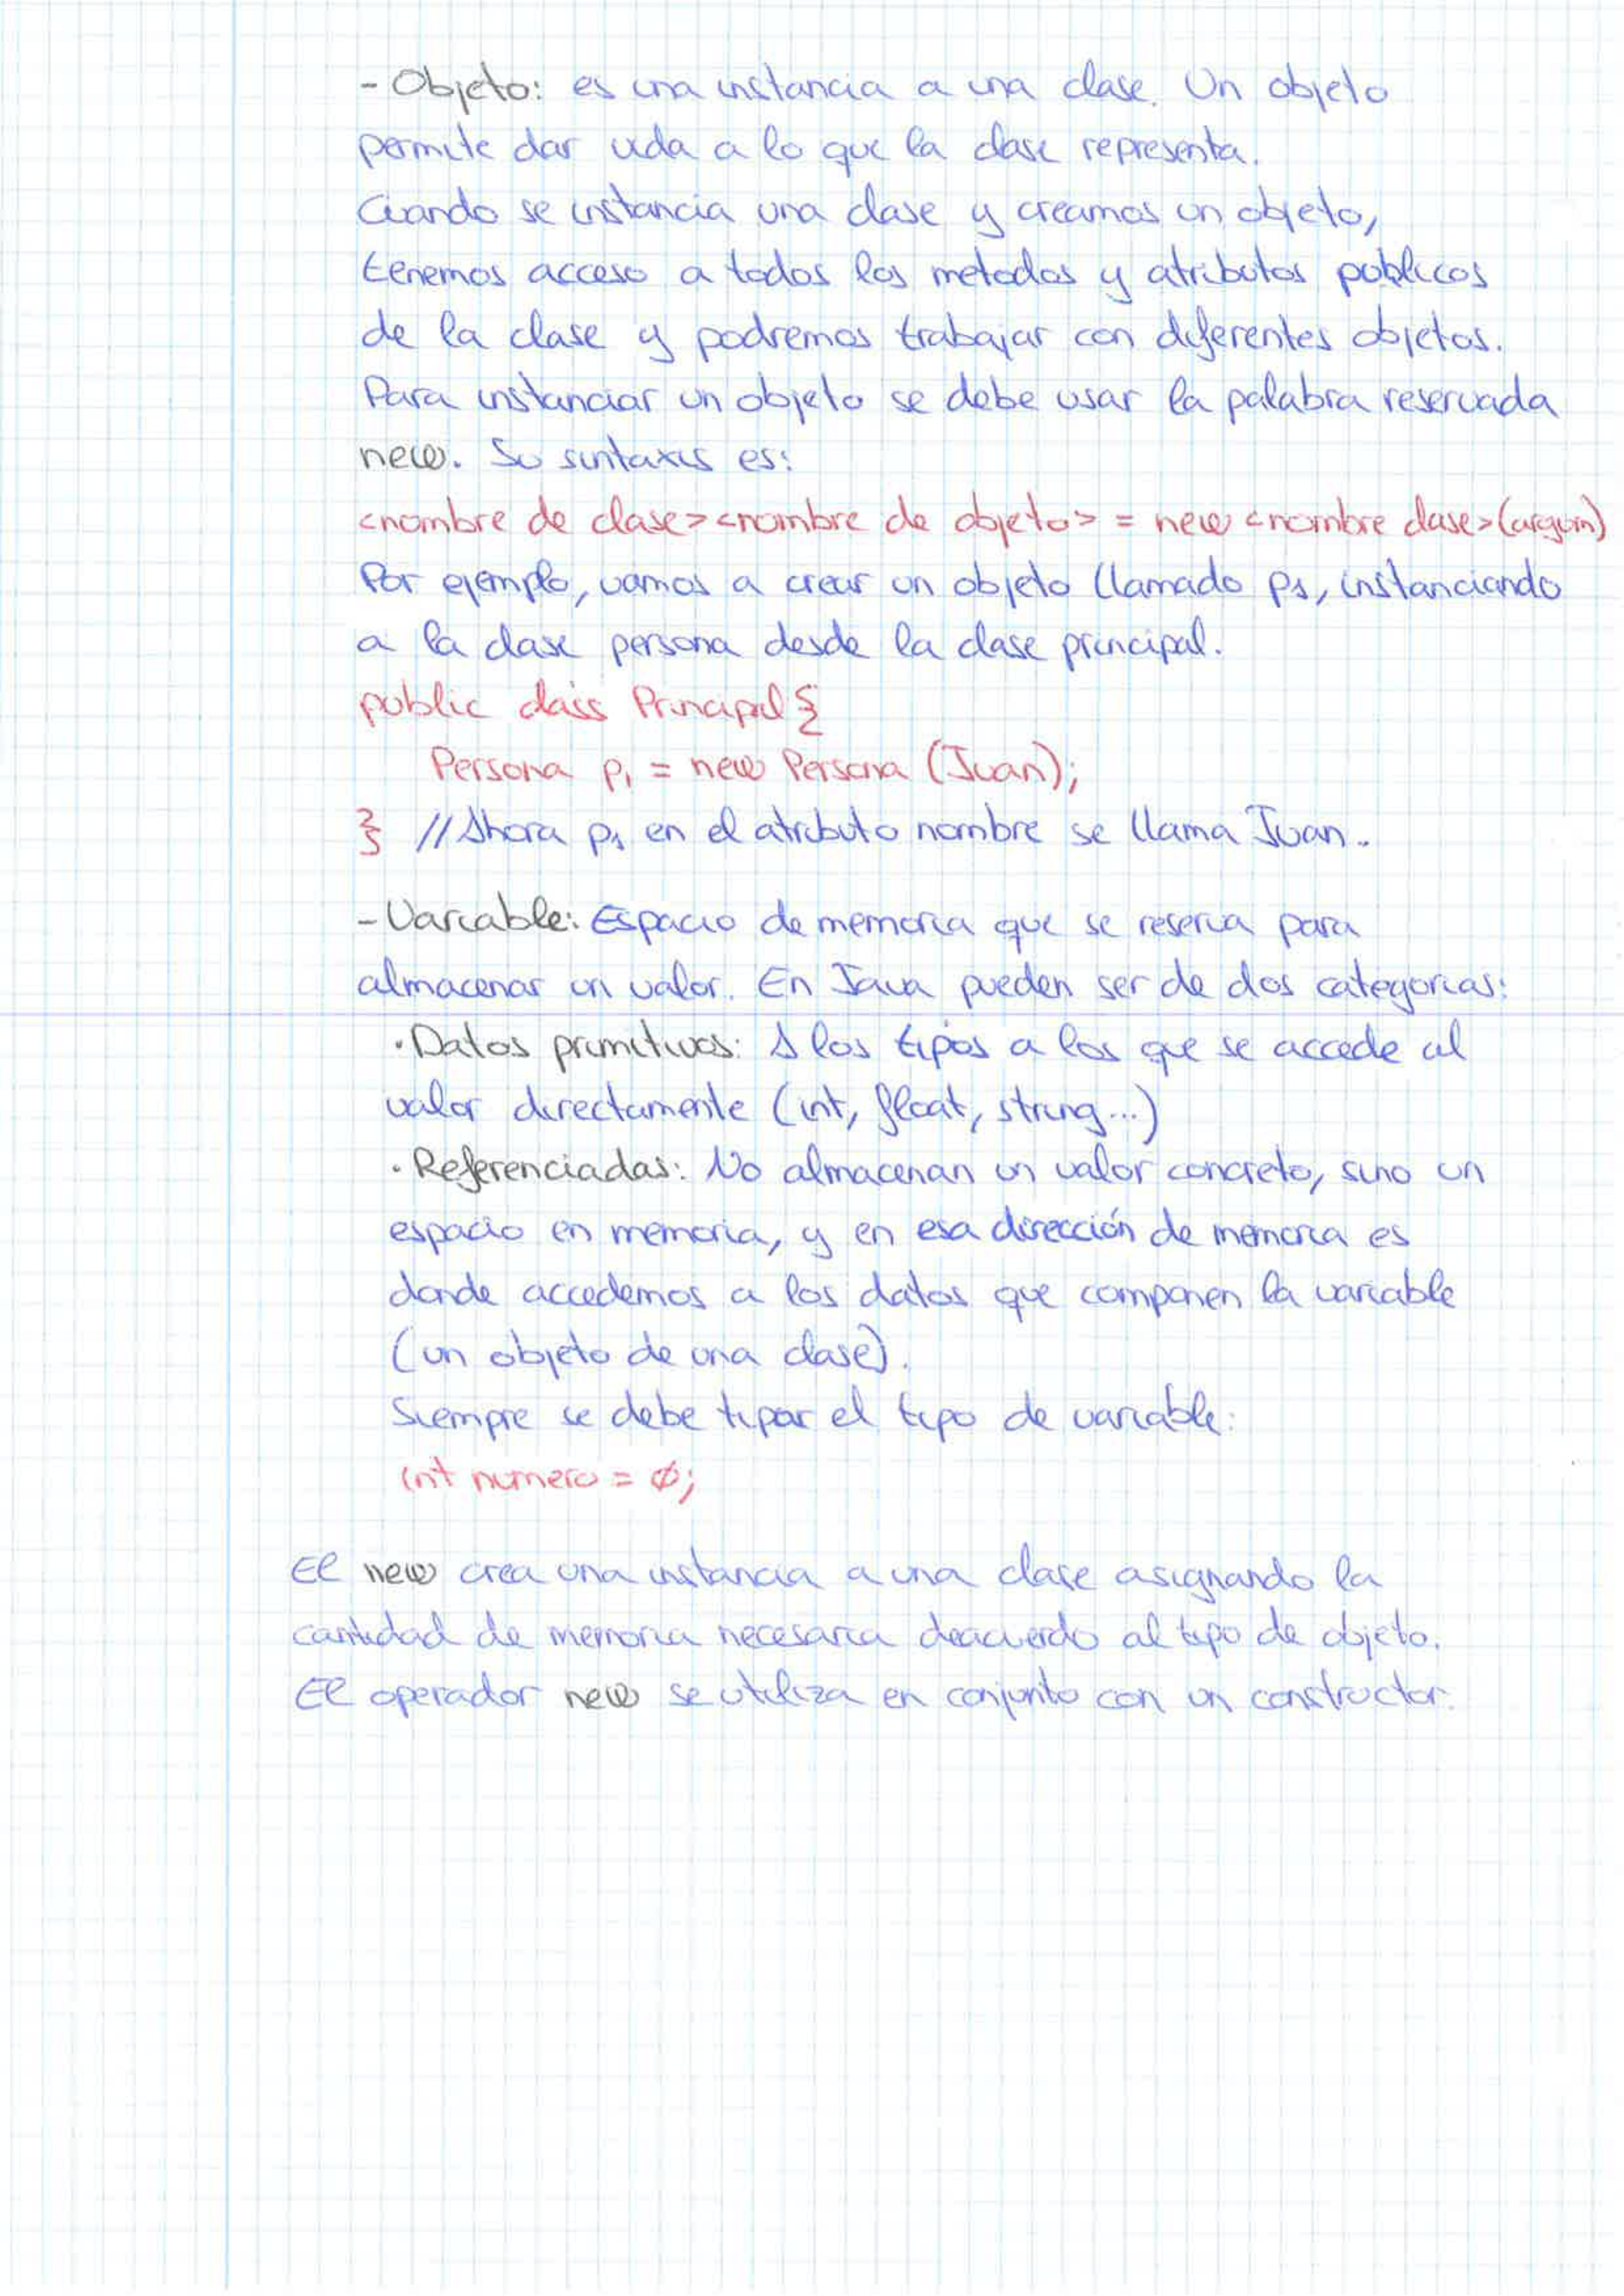 - Objeto: es una instancia a una clase. Un objeto
permite dar vida a lo que la clase representa.
Cuando se instancia una clase y creamos un objeto,
tenemos acceso a todos los metodos y atributos publicos
de la clase y podremos trabajar con diferentes objetos.
Para instanciar un objeto se debe usar la palabra reservada
new. Su sintaxis es:
<nombre de clase> <nombre de objeto> = new <nombre clase>(argum)
Por ejemplo, vamos a crear un objeto llamado p1, instanciando
a la clase persona desde la clase principal.
public class Principal {
Persona p1 = new Persona (Juan);
} // Ahora p1 en el atributo nombre se llama Juan.
- Variable: Espacio de memoria que se reserva para
almacenar un valor. En Java pueden ser de dos categorias:
· Datos primitivos: A los tipos a los que se accede al
valor directamente (int, float, string...)
· Referenciadas: No almacenan un valor concreto, sino un
espacio en memoria, y en esa dirección de memoria es
donde accedemos a los datos que componen la variable
(un objeto de una clase).
Siempre se debe tipar el tipo de variable:
int numero = 0;
El new crea una instancia a una clase asignando la
cantidad de memoria necesaria deacuerdo al tipo de objeto.
El operador new se utiliza en conjunto con un constructor.